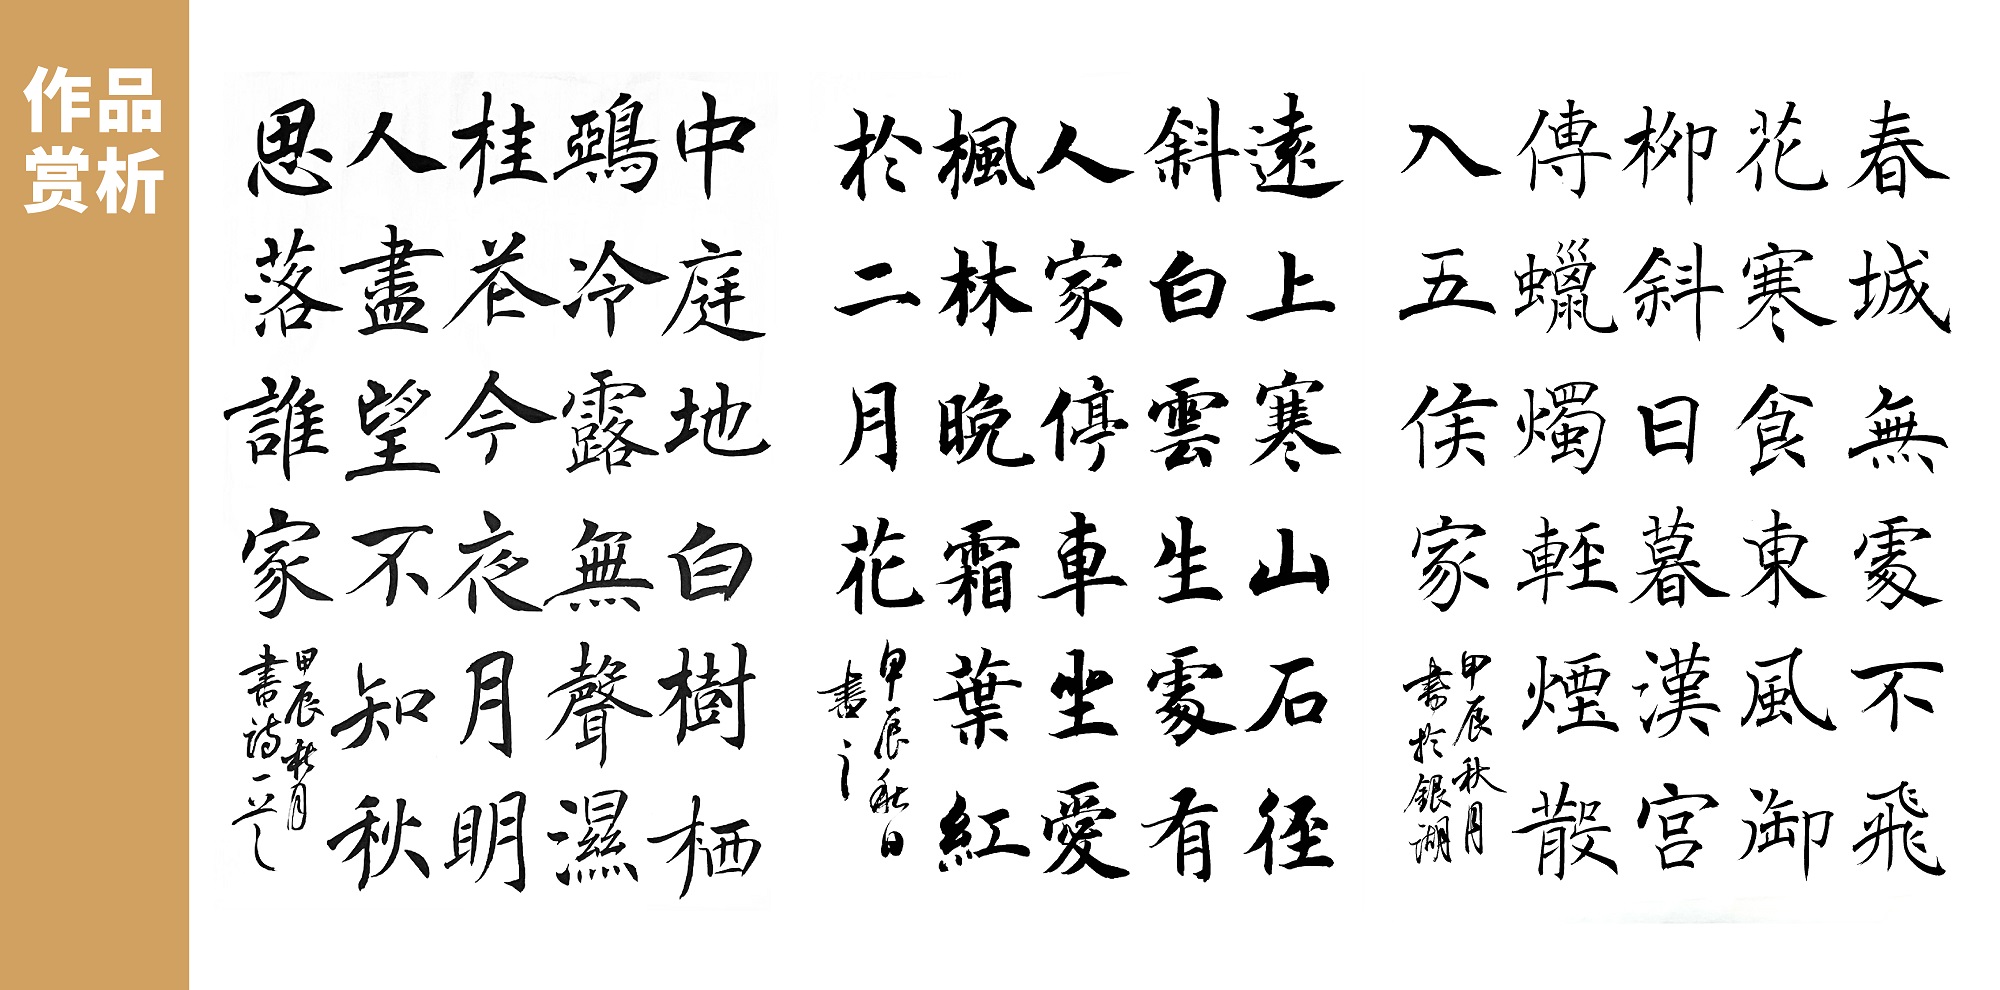 作品
赏析
春城無處不飛
花寒食東風御
柳斜日暮漢宮
傳蠟燭輕煙散
入五侯家
甲辰秋月
書於銀湖
遠上寒山石徑
斜白雲生處有
人家停車坐愛
楓林晚霜葉紅
於二月花
甲辰秋日
書之
中庭地白樹栖
鵶冷露無聲濕
桂花今夜月明
人盡望不知秋
思落誰家
甲辰秋月
書詩一首